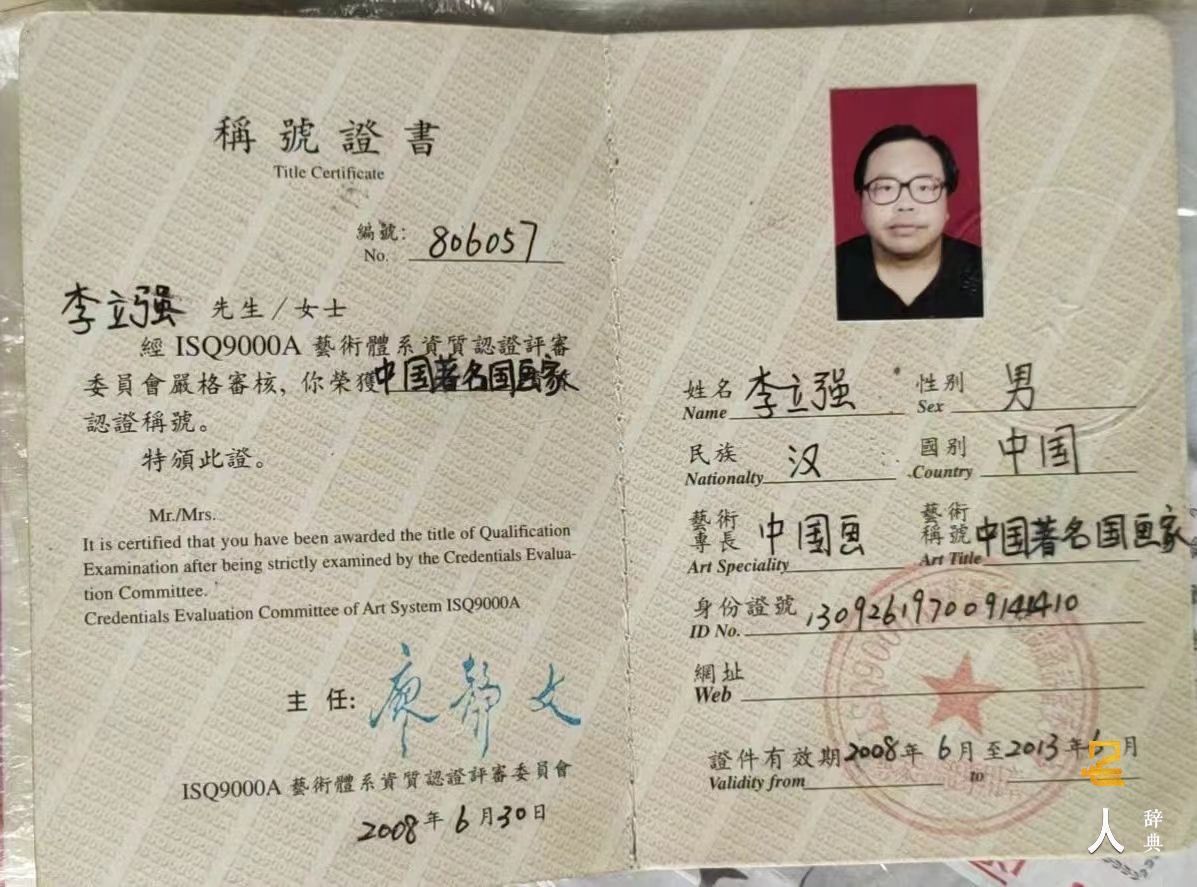 稱號證書
Title Certificate
編號:
No. 806057
李立强 先生／女士
經 ISQ9000A 藝術體系資質認證評審
委員會嚴格審核, 你榮獲中国著名国画家
認證稱號。
特頒此證。
Mr./Mrs.
It is certified that you have been awarded the title of Qualification
Examination after being strictly examined by the Credentials Evalua-
tion Committee.
Credentials Evaluation Committee of Art System ISQ9000A
主 任: 廖静文
ISQ9000A 藝術體系資質認證評審委員會
2008年 6月30日
姓名 李立强 性別 男
Name Sex
民族 汉 國別 中国
Nationalty Country
藝術專長 中国画 藝術稱號 中国著名国画家
Art Speciality Art Title
身份證號 130926197009141410
ID No.
網址
Web
證件有效期2008年 6月至2013年6月
Validity from to
人 辞典